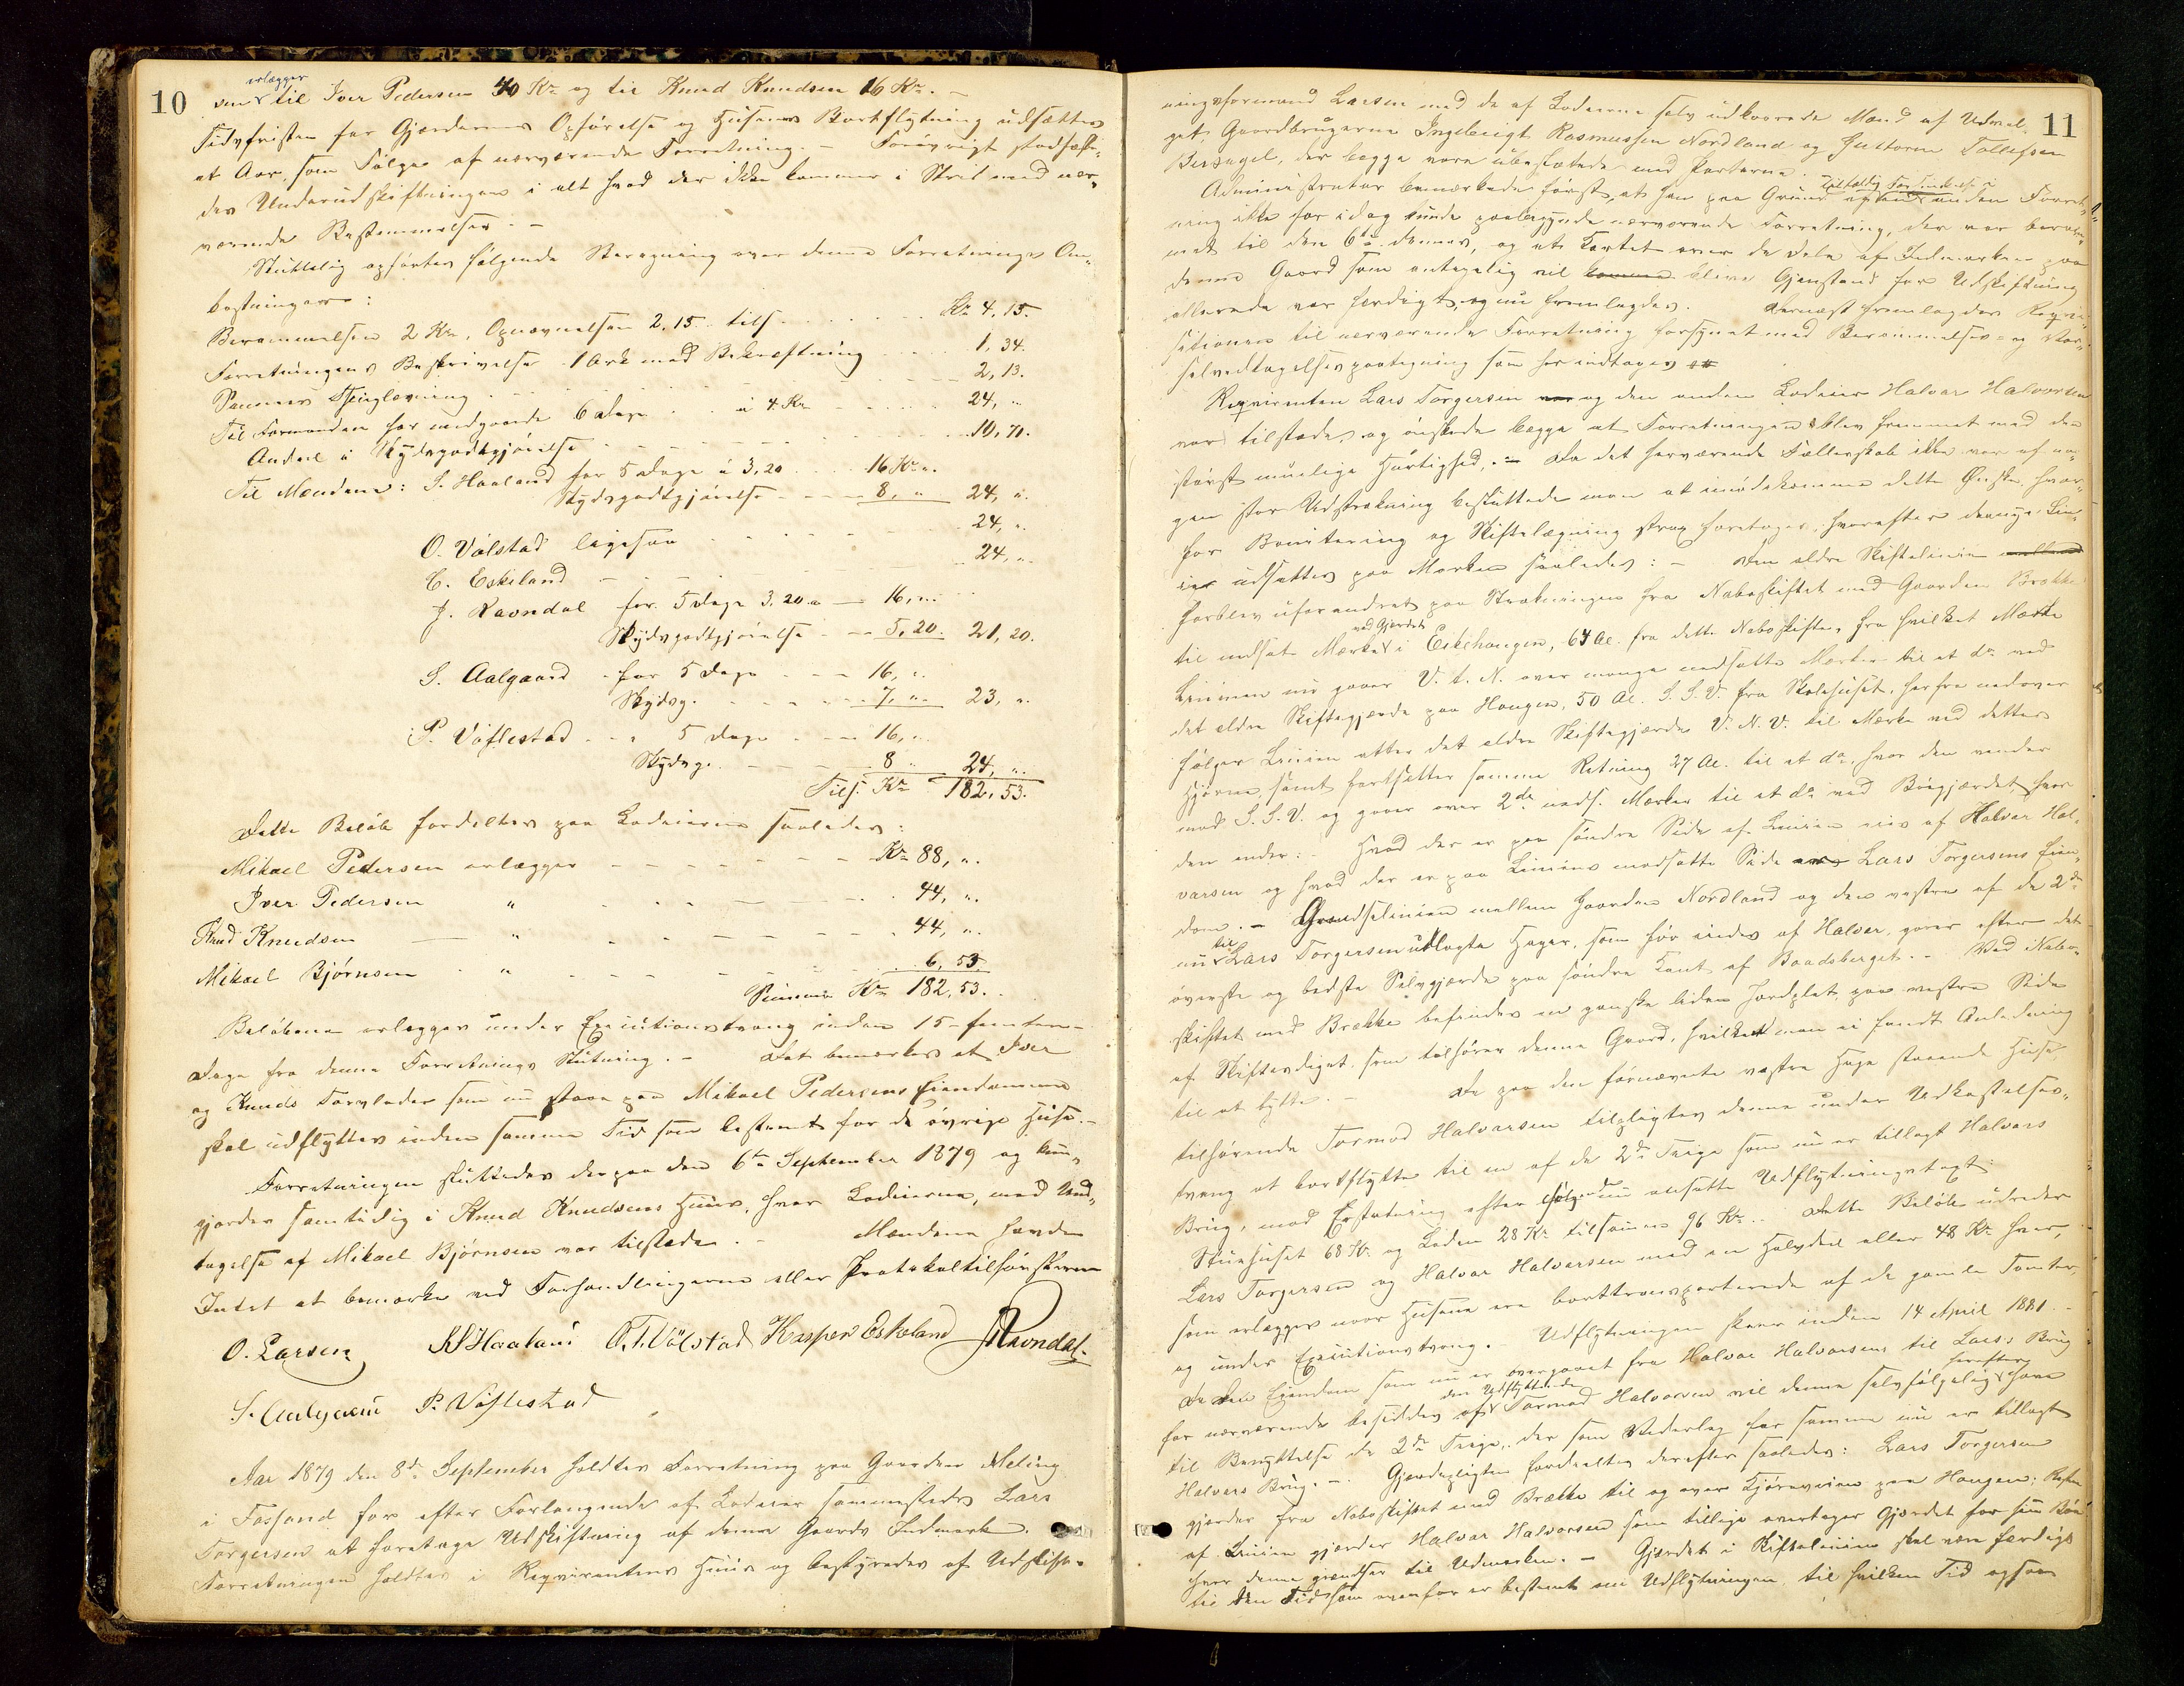 10
erlægger
den til Iver Pedersen 40 Kr. og til Knud Knudsen 16 Kr. —
Tidsfristen for Gjærdernes Opførelse og Husenes Bortflytning udsættes
et Aar, som Følge af nærværende Forretning. — Forøvrigt stadfæste-
des Underudskiftningen i alt hvad der ikke kommer i Strid med nær-
værende Bestemmelser. —
Sluttelig opførtes følgende Beregning over denne Forretnings Om-
kostninger:
Berammelsen 2 Kr., Opnævnelsen 2,15. tils. Kr. 4,15.
Forretningens Beskrivelse 1 Ark med Bekræftning 1,34.
Sammes Thinglæsning 2,13.
Til Formanden for medgaaede 6 Dage à 4 Kr. 24, "
Andeel i Skydsgodtgjørelse 10,70.
Til Mændene: S. Haaland for 5 Dage à 3,20 16 Kr. ".
Skydsgodtgjørelse 8, " 24, ".
O. Vølstad ligesaa 24, ".
C. Eskeland 24, ".
J. Ravndal for 5 Dage 3,20 16, ".
Skydsgodtgjørelse 5,20. 21,20.
S. Aalgaard for 5 Dage 16, ".
Skydsg. 7, ". 23, ".
P. Vøflestad 5 Dage 16, ".
Skydsg. 8 " 24, ".
Tils. Kr. 182,53.
Dette Beløb fordeltes paa Lodeierne saaledes:
Mikael Pedersen erlægger Kr. 88, ".
Iver Pedersen " 44, ".
Knud Knudsen " 44, ".
Mikael Bjørnsen " 6,53.
Summa Kr. 182,53.
Beløbene erlægges under Executionstvang inden 15 – femten –
Dage fra denne Forretnings Slutning. — Det bemærkes at Iver
og Knuds Torvlader som nu staar paa Mikael Pedersens Eiendomme
skal udflyttes inden samme Tid som bestemt for de øvrige Huse. —
Forretningen sluttedes derpaa den 6te September 1879 og kund-
gjordes samtidig i Knud Knudsens Huus, hvor Lodeierne, med Und-
tagelse af Mikael Bjørnsen var tilstede. — Mændene havde
Intet at bemærke ved Forhandlingerne eller Protokoltilførslerne
O. Larsen SS Haaland O. T. Vølstad Kasper Eskeland J Ravndal.
S. Aalgaard P. Vøflestad
Aar 1879 den 8de September holdtes Forretning paa Gaarden Meling
i Fossand for efter Forlangende af Lodeier sammesteds Lars
Torgersen at foretage Udskiftning af denne Gaards Indmark.
Forretningen holdtes i Reqvirentens Huus og bestyredes af Udskift-
11
ningsformand Larsen med de af Lodeierne selv udkaarede Mænd af Udval-
get, Gaardbrugerne Ingebrigt Rasmussen Nordland og Guttorm Tollefsen
Bersagel, der begge vare ubeslægtede med Parterne. —
Administrator bemærkede først, at han paa Grund af en anden Forret-
tilfældig Forhindrelse i
ning ikke før idag kunde paabegynde nærværende Forretning, der var beram-
met til den 6te dennes, og at Kartet over de Dele af Indmarken paa
denne Gaard som antagelig vil komme blive Gjenstand for Udskiftning
allerede var færdigt, og nu fremlagdes. Dernæst fremlagdes Reqvi-
sitionen til nærværende Forretning forsynet med Berammelses- og Var-
selvedtagelsespaategning som her indtages
Reqvirenten Lars Torgersen var og den anden Lodeier Halvar Halvorsen
var tilstede, og ønskede begge at Forretningen blev fremmet med den
størst muelige Hurtighed. — Da det herværende Fællesskab ikke var af no-
gen stor Udstrækning besluttede man at imødekomme dette Ønske, hvor-
for Bonitering og Skiftelægning strax foretoges, hvorefter de nye Lin-
ier udsattes paa Marken saaledes: — Den ældre Skiftelinie mellem
forblev uforandret paa Strækningen fra Naboskiftet med Gaarden Brække
til nedsat Mærke i Eskehaugen, 64 Al. fra dette Naboskifte, fra hvilket Mærke
ved Gjærdet
Linien nu gaaer V. t. N. over mange nedsatte Mærker til et do. ved
det ældre Skiftegjærde paa Haugen, 50 Al. S. S. V. fra Skolehuset, herfra nedover
følger Linien etter det ældre Skiftegjærde V. N. V. til Mærke ved dettes
Hjørne, samt fortsetter samme Retning 27 Al. til et do., hvor den vender
mod S. S. V. og gaaer over 2de neds. Mærker til et do. ved Bøgjærdet hvor
den ender: — Hvad der er paa søndre Side af Linien eies af Halvar Hal-
varsen og hvad der er paa Liniens modsatte Side er Lars Torgersens Eien-
dom. — Grændselinien mellem Gaarden Nordland og den vestre af de 2de
til
nu Lars Torgersen udlagte Hager, som før eiedes af Halvar, gaaer efter det
øverste og bedste Selvgjærde paa søndre Kant af Baadsberget. — Ved Nabo-
skiftet med Brække befindes en ganske liden Jordplet, paa vestre Side
af Skiftesdiget, som tilhører denne Gaard, hvilket man ei fandt Anledning
til at bytte. — De paa den førnævnte vestre Hage staaende Huse,
tilhørende Tormod Halvarsen tilpligtes denne under Udkastelses-
tvang at bortflytte til en af de 2de Teige som nu er tillagt Halvars
Brug, mod Erstatning efter følgende nu ansatte Udflytningstaxt:
Stuehuset 68 Kr. og Laden 28 Kr. tilsammen 96 Kr. Dette Beløb udredes
Lars Torgersen og Halvar Halvarsen med en Halvdel eller 48 Kr. hver,
som erlægges naar Husene ere borttransporterede af de gamle Tomter,
og under Executionstvang. Udflytningen skeer inden 14 April 1881. —
Da den Eiendom som nu er overgaaet fra Halvar Halvarsens til Lars's Brug
den Udflyttende herefter
for nærværende besiddes af Tormod Halvorsen vil denne selvfølgelig have
til Benyttelse de 2de Teige, der som Vederlag for samme nu er tillagt
Halvars Brug. — Gjærdepligten fordeeltes derefter saaledes: Lars Torgersen
gjærder fra Naboskiftet med Brække til og over Kjøreveien paa Haugen; Resten
af Linien gjærder Halvar Halvarsen som tillige overtager Gjærdet for sin Bøe
hvor denne grændser til Udmarken. — Gjærdet i Skiftelinien skal være færdigt
til den Tid som ovenfor er bestemt om Udflytningen, til hvilken Tid ogsaa